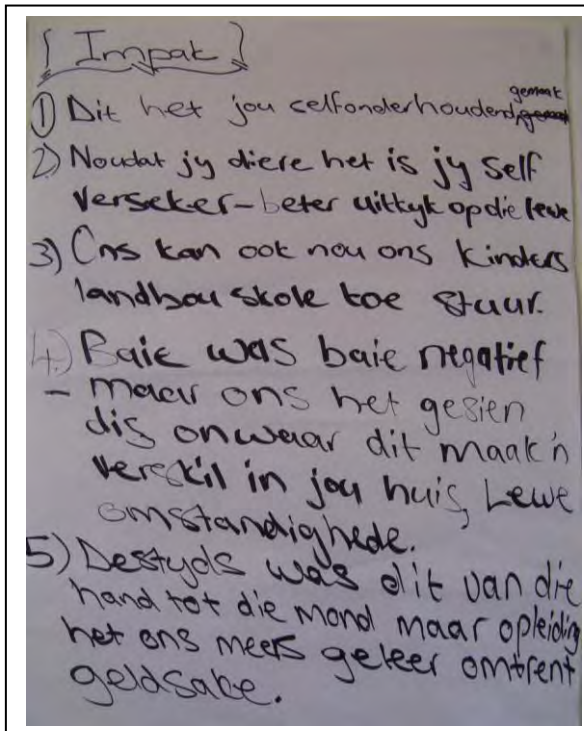 [Impak]
① Dit het jou selfonderhoudend gemaak
2) Noudat jy diere het is jy self
verseker - beter uitkyk op die lewe
3) Ons kan ook nou ons kinders
landbou skole toe stuur.
4.) Baie was baie negatief
- maar ons het gesien
dis onwaar dit maak 'n
verskil in jou huis, Lewe
omstandighede.
5) Destyds was dit van die
hand tot die mond maar opleiding
het ons meers geleer omtrent
geldsake.